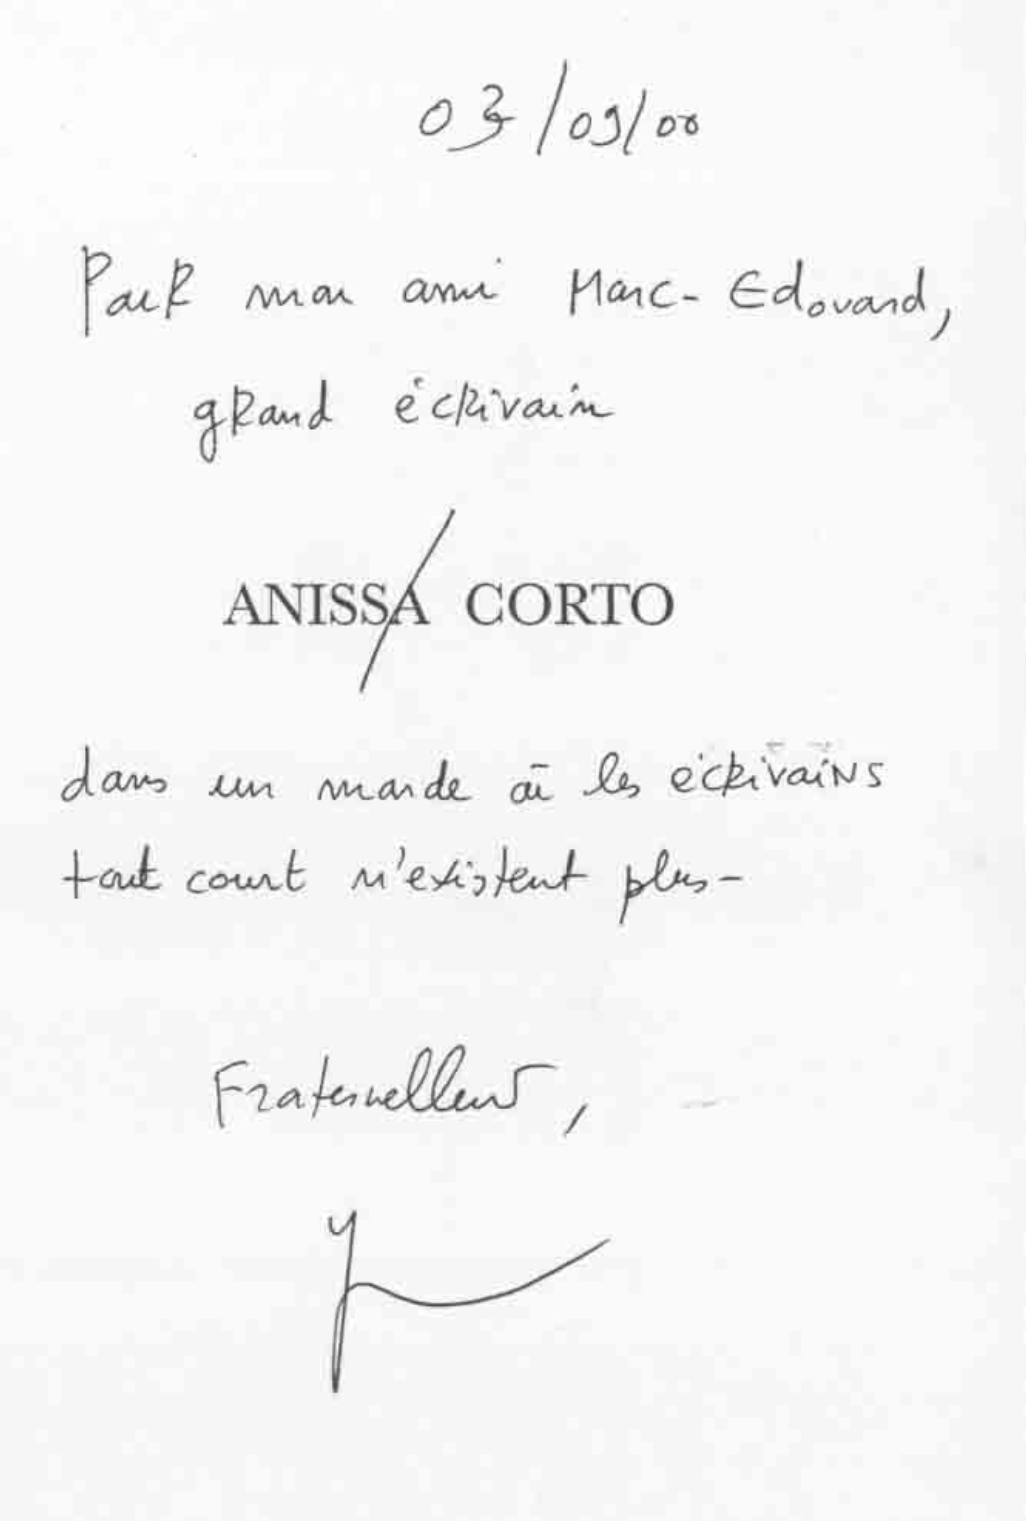 03/09/00
Pour mon ami Marc-Edouard,
grand écrivain
ANISSA CORTO
dans un monde où les écrivains
tout court n'existent plus-
Fraternellement,